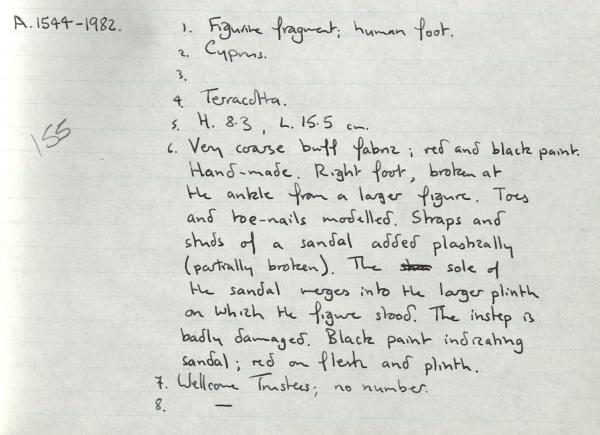 A.1544-1982.
1. Figurine fragment; human foot.
2. Cyprus.
3.
4. Terracotta.
5. H. 8.3, L. 15.5 cm.
155
6. Very coarse buff fabric; red and black paint.
Hand-made. Right foot, broken at
the ankle from a larger figure. Toes
and toe-nails modelled. Straps and
studs of a sandal added plastically
(partially broken). The sole of
the sandal merges into the larger plinth
on which the figure stood. The instep is
badly damaged. Black paint indicating
sandal; red on flesh and plinth.
7. Wellcome Trustees; no number.
8. —